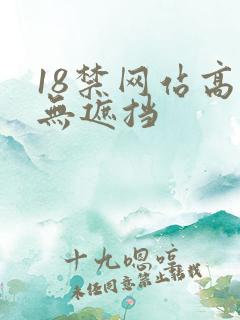 18禁网佔高
無遮挡
十九嗯哼
未经同意禁止转载